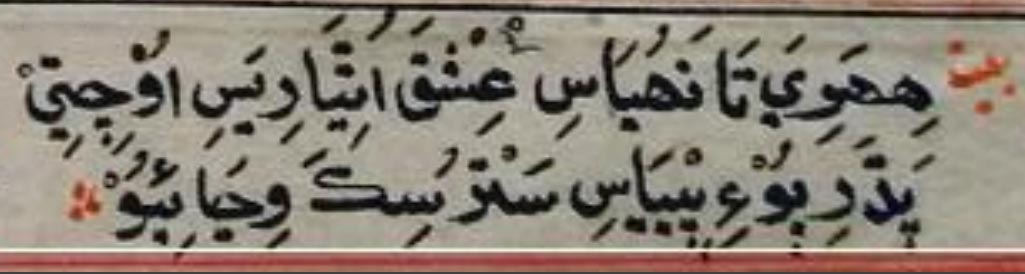 بيت هِهَوِيَ تَا نَهُيَاسِ عِشْقَ اُتِّيَارِيَسِ اوُچِتِيْ
پَڌَرِ بوُءِ پِيَاسِ سَنْرَ سِڪَ وِجَائِبوُ